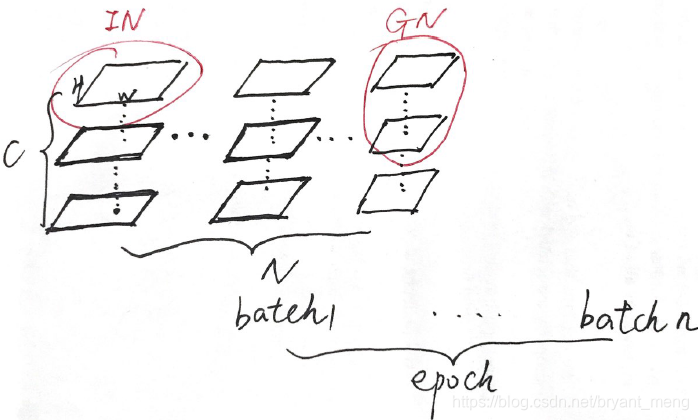 IN GN
H
W
C
... ...
N
batch1 .... batch n
epoch
https://blog.csdn.net/bryant_meng